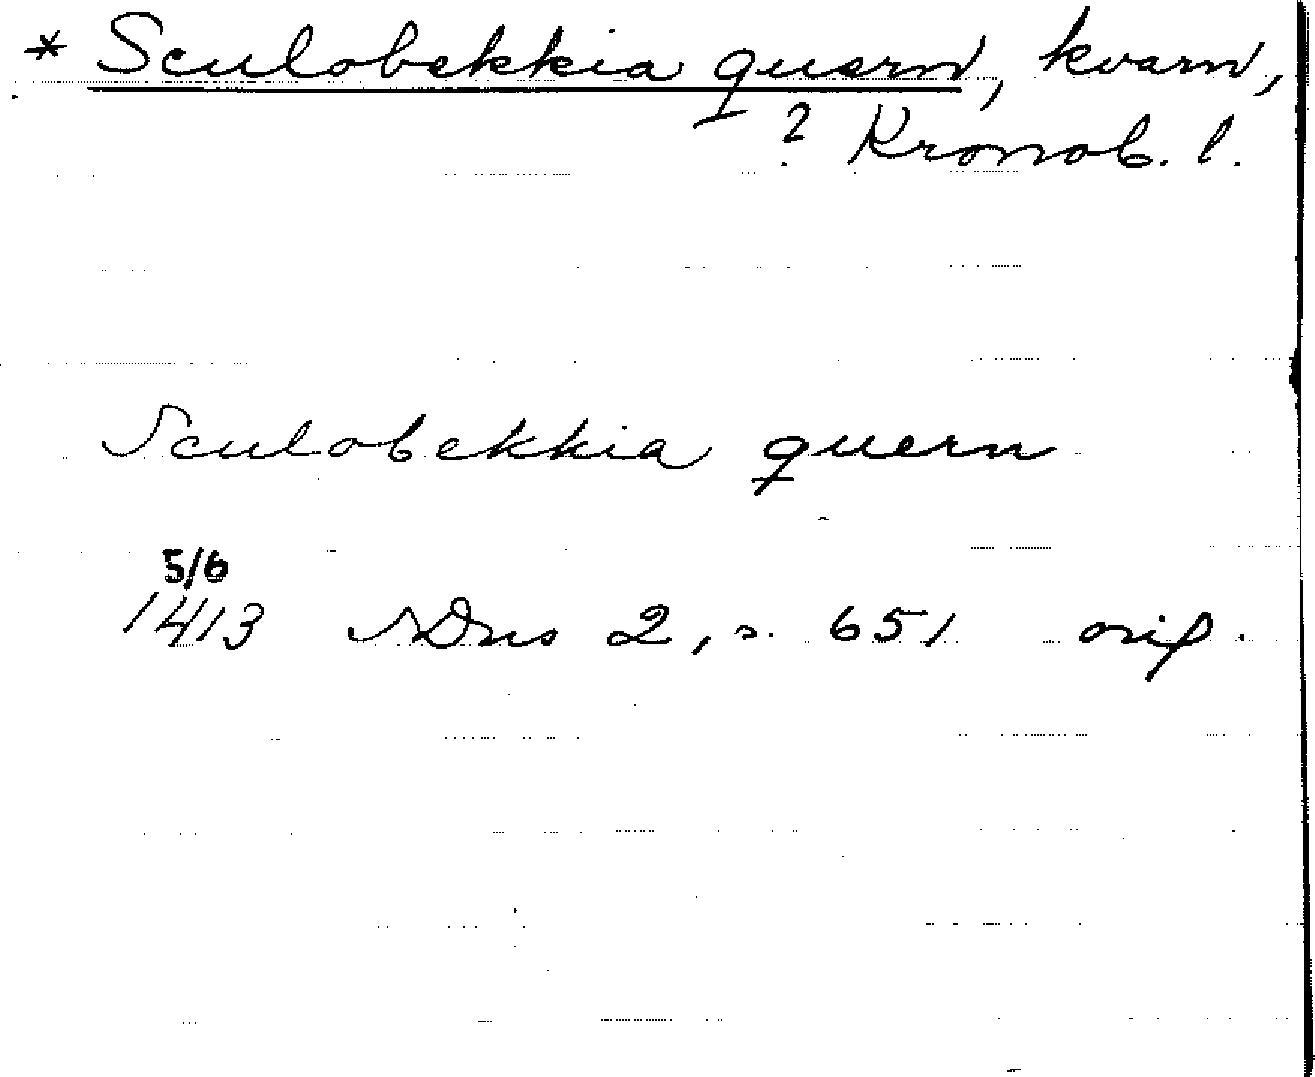 * Sculobekkia quern, kvarn,
? Kronob. l.
Sculobekkia quern
5/6
1413 SDns 2, s. 651 orig.